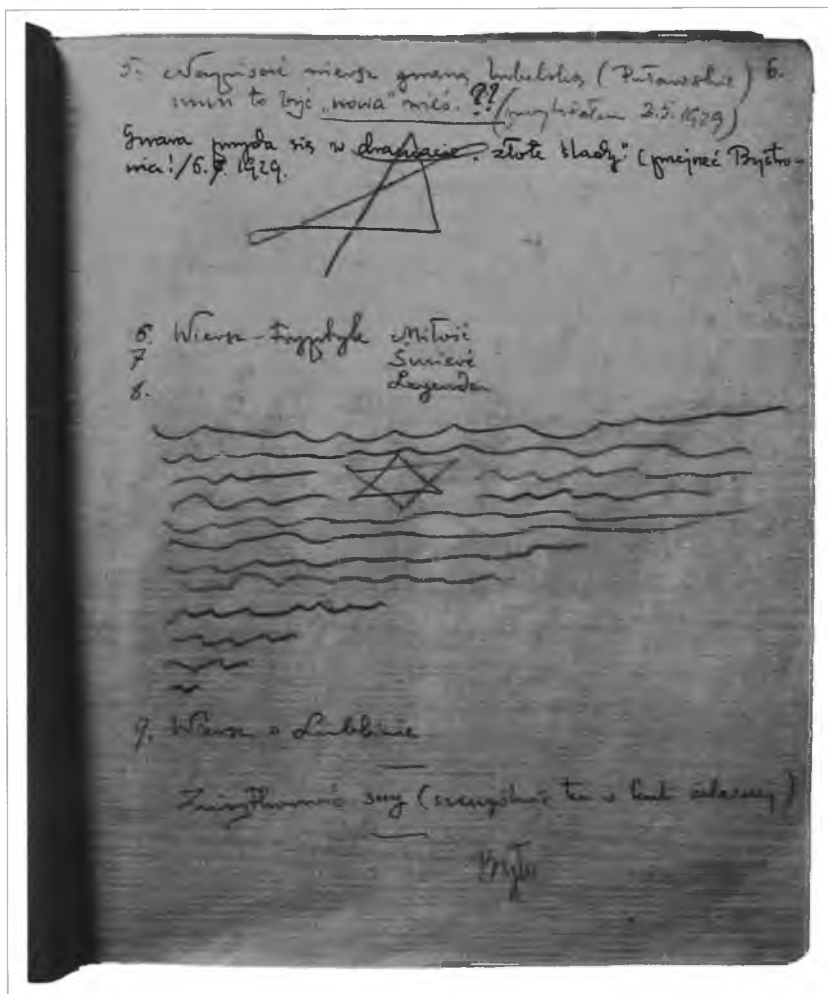 5. Napisać wiersz gwarą lubelską (Puławskie) 6.
musi to być „nowa" wieś. ?? / (myślałem 2.5.1929)
Gwara przyda się w dramacie „złote ślady" (przejrzeć Bystro-
nia! / 6. 1929.
6. Wiersz-Tryptyk Miłość
7 Śmierć
8. Legenda
9. Wiersz o Lublinie
sny (szczególnie ten o